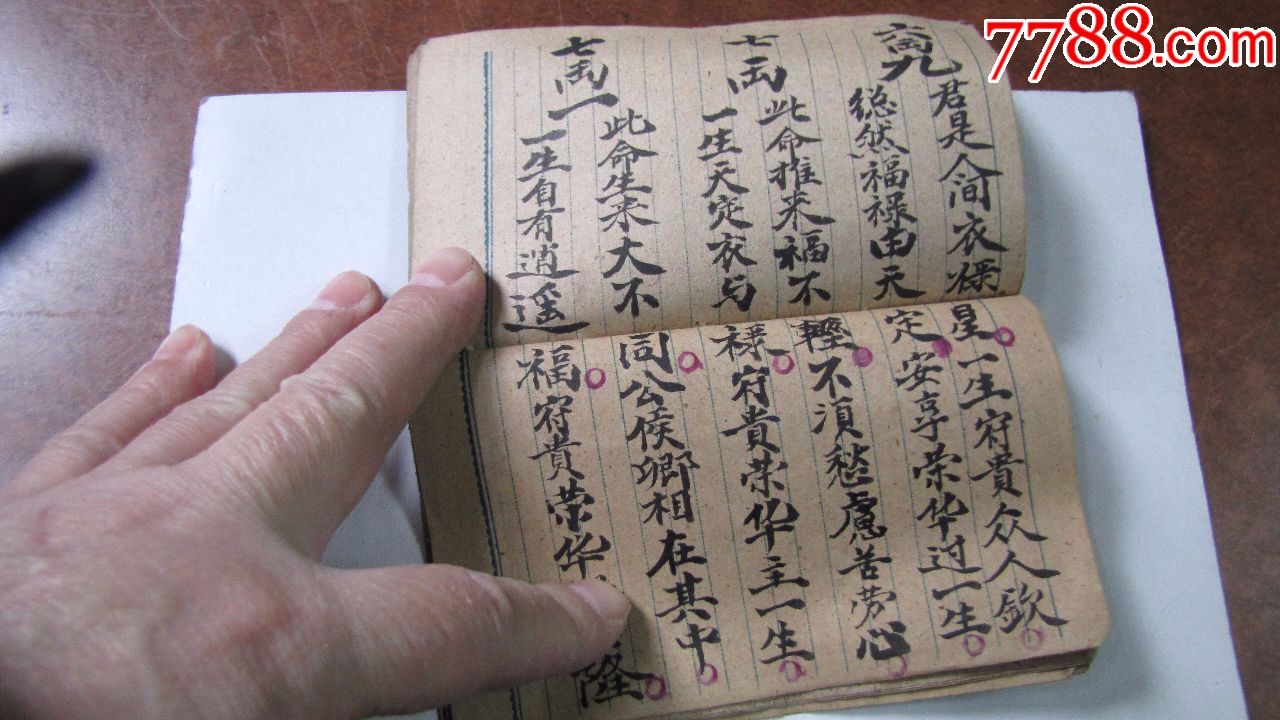 7788.com
六两九
君是人间衣禄星一生府貴众人欽
総然福禄由天定安享荣华过一生
七两
此命推来福不輕不須愁慮苦劳心
一生天定衣与禄府貴荣华主一生
七两一
此命生来大不同公侯卿相在其中
一生自有逍遥福府貴荣华隆